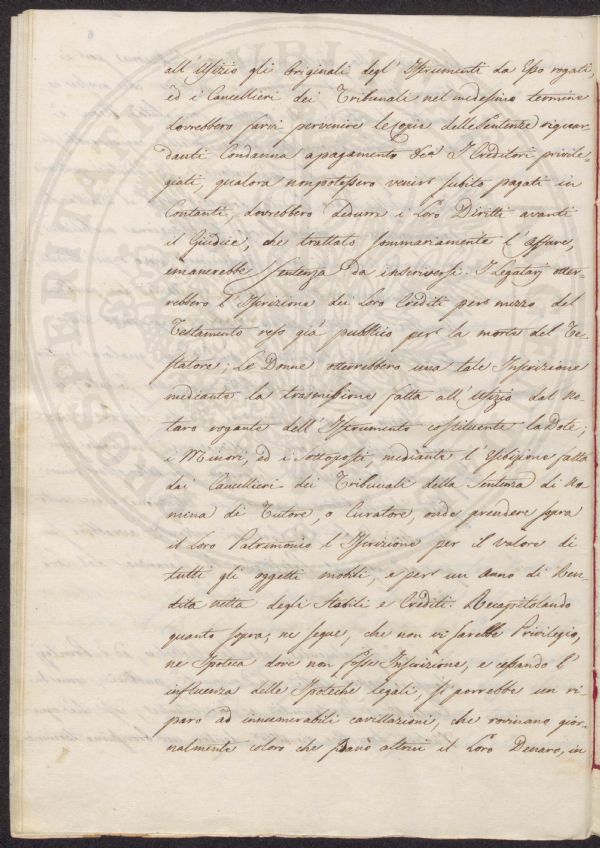 all'Ufizio gli Originali degl'Istrumenti da Esso rogati,
ed i Cancellieri dei Tribunali nel medesimo termine
dovrebbero farvi pervenire le Copie delle Sentenze riguar-
danti Condanna a pagamento. I Creditori privile-
giati, qualora non potessero venire subito pagati in
Contanti, dovrebbero dedurre i Loro Diritti avanti
il Giudice, che trattato sommariamente l'affare,
emanerebbe Sentenza da inscriversi. I Legatarj otter-
rebbero l'Iscrizione dei Loro Crediti per mezzo del
Testamento reso già pubblico per la morte del Te-
statore; Le Donne otterrebbero una tale Inscrizione
mediante la trasmissione fatta all'Ufizio dal No-
taro rogante dell'Istrumento costituente la Dote;
i Minori, ed i sottoposti, mediante l'esibizione fatta
dai Cancellieri dei Tribunali della Sentenza di No-
mina di Tutore, o Curatore, onde prendere sopra
il Loro Patrimonio l'Iscrizione per il valore di
tutti gli oggetti mobili, e per un Anno di Ren-
dita netta degli Stabili e Crediti. Recapitolando
quanto sopra, ne segue, che non vi sarebbe Privilegio,
ne Ipoteca dove non fosse Inscrizione, e cessando l'
influenza delle Ipoteche legali, si porrebbe un ri-
paro ad innumerabili cavillazioni, che rovinano gior-
nalmente coloro che dano altrui il Loro Denaro, in